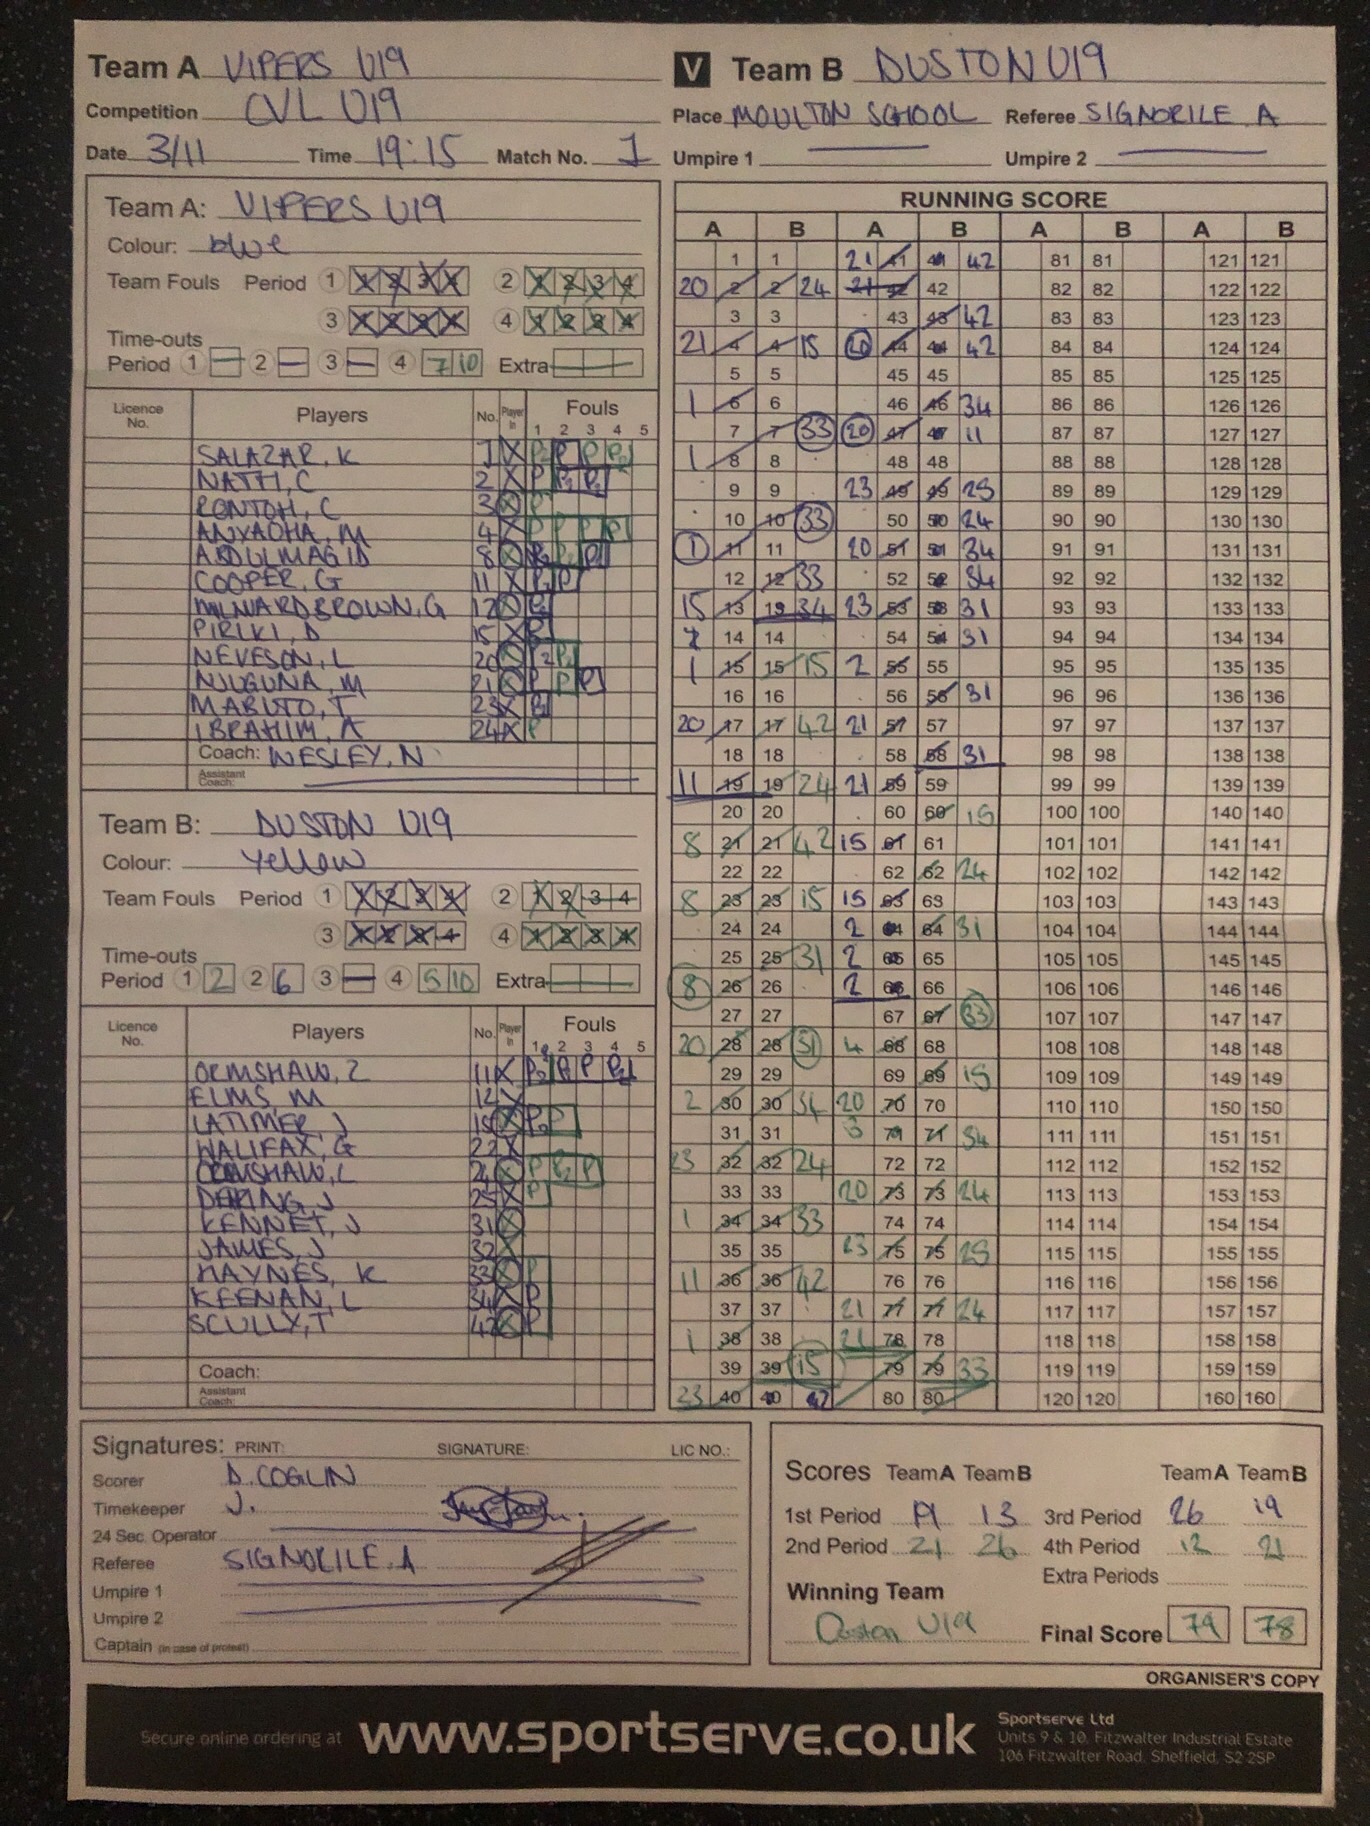 Team A VIPERS U19 V Team B DUSTON U19
Competition CVL U19 Place MOULTON SCHOOL Referee SIGNORILE A
Date 3/11 Time 19:15 Match No. 1 Umpire 1 Umpire 2
Team A: VIPERS U19
Colour: blue
Team Fouls Period 1 1 2 3 4 2 1 2 3 4
3 1 2 3 4 4 1 2 3 4
Time-outs
Period 1 2 3 4 7 10 Extra
Licence No. Players No. Player in Fouls 1 2 3 4 5
SALAZAR, K 1 X P2 P P P2
NATH, C 2 X P P2 P2
RONTOH, C 3 X P
ANYAOHA, M 4 X P P P P1
ABDULMAGID 8 X P2 P2 P1
COOPER, G 11 X P2 P
MILWARDBROWN, G 12 X P2
PIRLKI, D 15 X P2
NEVESON, L 20 X P2 P2
NJUGUNA, M 21 X P P P
MABUTO, T 23 X P2
IBRAHIM, A 24 X P
Coach: WESLEY, N
Assistant Coach:
Team B: DUSTON U19
Colour: Yellow
Team Fouls Period 1 1 2 3 4 2 1 2 3 4
3 1 2 3 4 4 1 2 3 4
Time-outs
Period 1 2 2 6 3 4 5 10 Extra
Licence No. Players No. Player in Fouls 1 2 3 4 5
ORMSHAW, Z 11 X P2 P P P2
ELMS, M 12 X
LATIMER, J 15 X P2 P
HALIFAX, G 22 X
ORMSHAW, L 24 X P P2 P
DEKING, J 25 X P
KENNET, J 31 X
JAMES, J 32 X
HAYNES, K 33 X P
KEENAN, L 34 X P
SCULLY, T 42 X P
Coach:
Assistant Coach:
RUNNING SCORE
A B A B A B A B
1 1 21 41 41 42 81 81 121 121
20 2 2 24 21 42 42 82 82 122 122
3 3 43 43 42 83 83 123 123
21 4 4 15 20 44 44 42 84 84 124 124
5 5 45 45 85 85 125 125
1 6 6 46 46 34 86 86 126 126
7 7 33 20 47 47 11 87 87 127 127
1 8 8 48 48 88 88 128 128
9 9 23 49 49 25 89 89 129 129
10 10 33 50 50 24 90 90 130 130
1 11 11 20 51 51 34 91 91 131 131
12 12 33 52 52 34 92 92 132 132
15 13 13 34 23 53 53 31 93 93 133 133
14 14 54 54 31 94 94 134 134
1 15 15 15 2 55 55 95 95 135 135
16 16 56 56 31 96 96 136 136
20 17 17 42 21 57 57 97 97 137 137
18 18 58 58 31 98 98 138 138
11 19 19 24 21 59 59 99 99 139 139
20 20 60 60 15 100 100 140 140
8 21 21 42 15 61 61 101 101 141 141
22 22 62 62 24 102 102 142 142
8 23 23 15 15 63 63 103 103 143 143
24 24 2 64 64 31 104 104 144 144
25 25 31 2 65 65 105 105 145 145
8 26 26 2 66 66 106 106 146 146
27 27 67 67 33 107 107 147 147
20 28 28 31 4 68 68 108 108 148 148
29 29 69 69 15 109 109 149 149
2 30 30 34 20 70 70 110 110 150 150
31 31 3 71 71 34 111 111 151 151
23 32 32 24 72 72 112 112 152 152
33 33 20 73 73 24 113 113 153 153
1 34 34 33 74 74 114 114 154 154
35 35 23 75 75 25 115 115 155 155
11 36 36 42 76 76 116 116 156 156
37 37 21 77 77 24 117 117 157 157
1 38 38 21 78 78 118 118 158 158
39 39 15 79 79 33 119 119 159 159
23 40 40 42 80 80 120 120 160 160
Signatures: PRINT: SIGNATURE: LIC NO.:
Scorer D. COGLIN
Timekeeper J.
24 Sec. Operator
Referee SIGNORILE. A
Umpire 1
Umpire 2
Captain (in case of protest)
Scores Team A Team B Team A Team B
1st Period 19 13 3rd Period 26 19
2nd Period 21 26 4th Period 12 21
Extra Periods
Winning Team
Duston U19 Final Score 79 78
ORGANISER'S COPY
Secure online ordering at www.sportserve.co.uk
Sportserve Ltd
Units 9 & 10, Fitzwalter Industrial Estate
106 Fitzwalter Road, Sheffield, S2 2SP